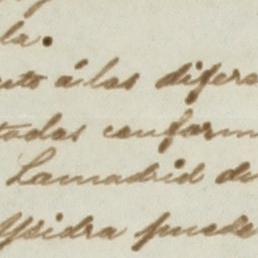 la.
nto á las difere
todas conform
Lamadrid du
Ysidra puede